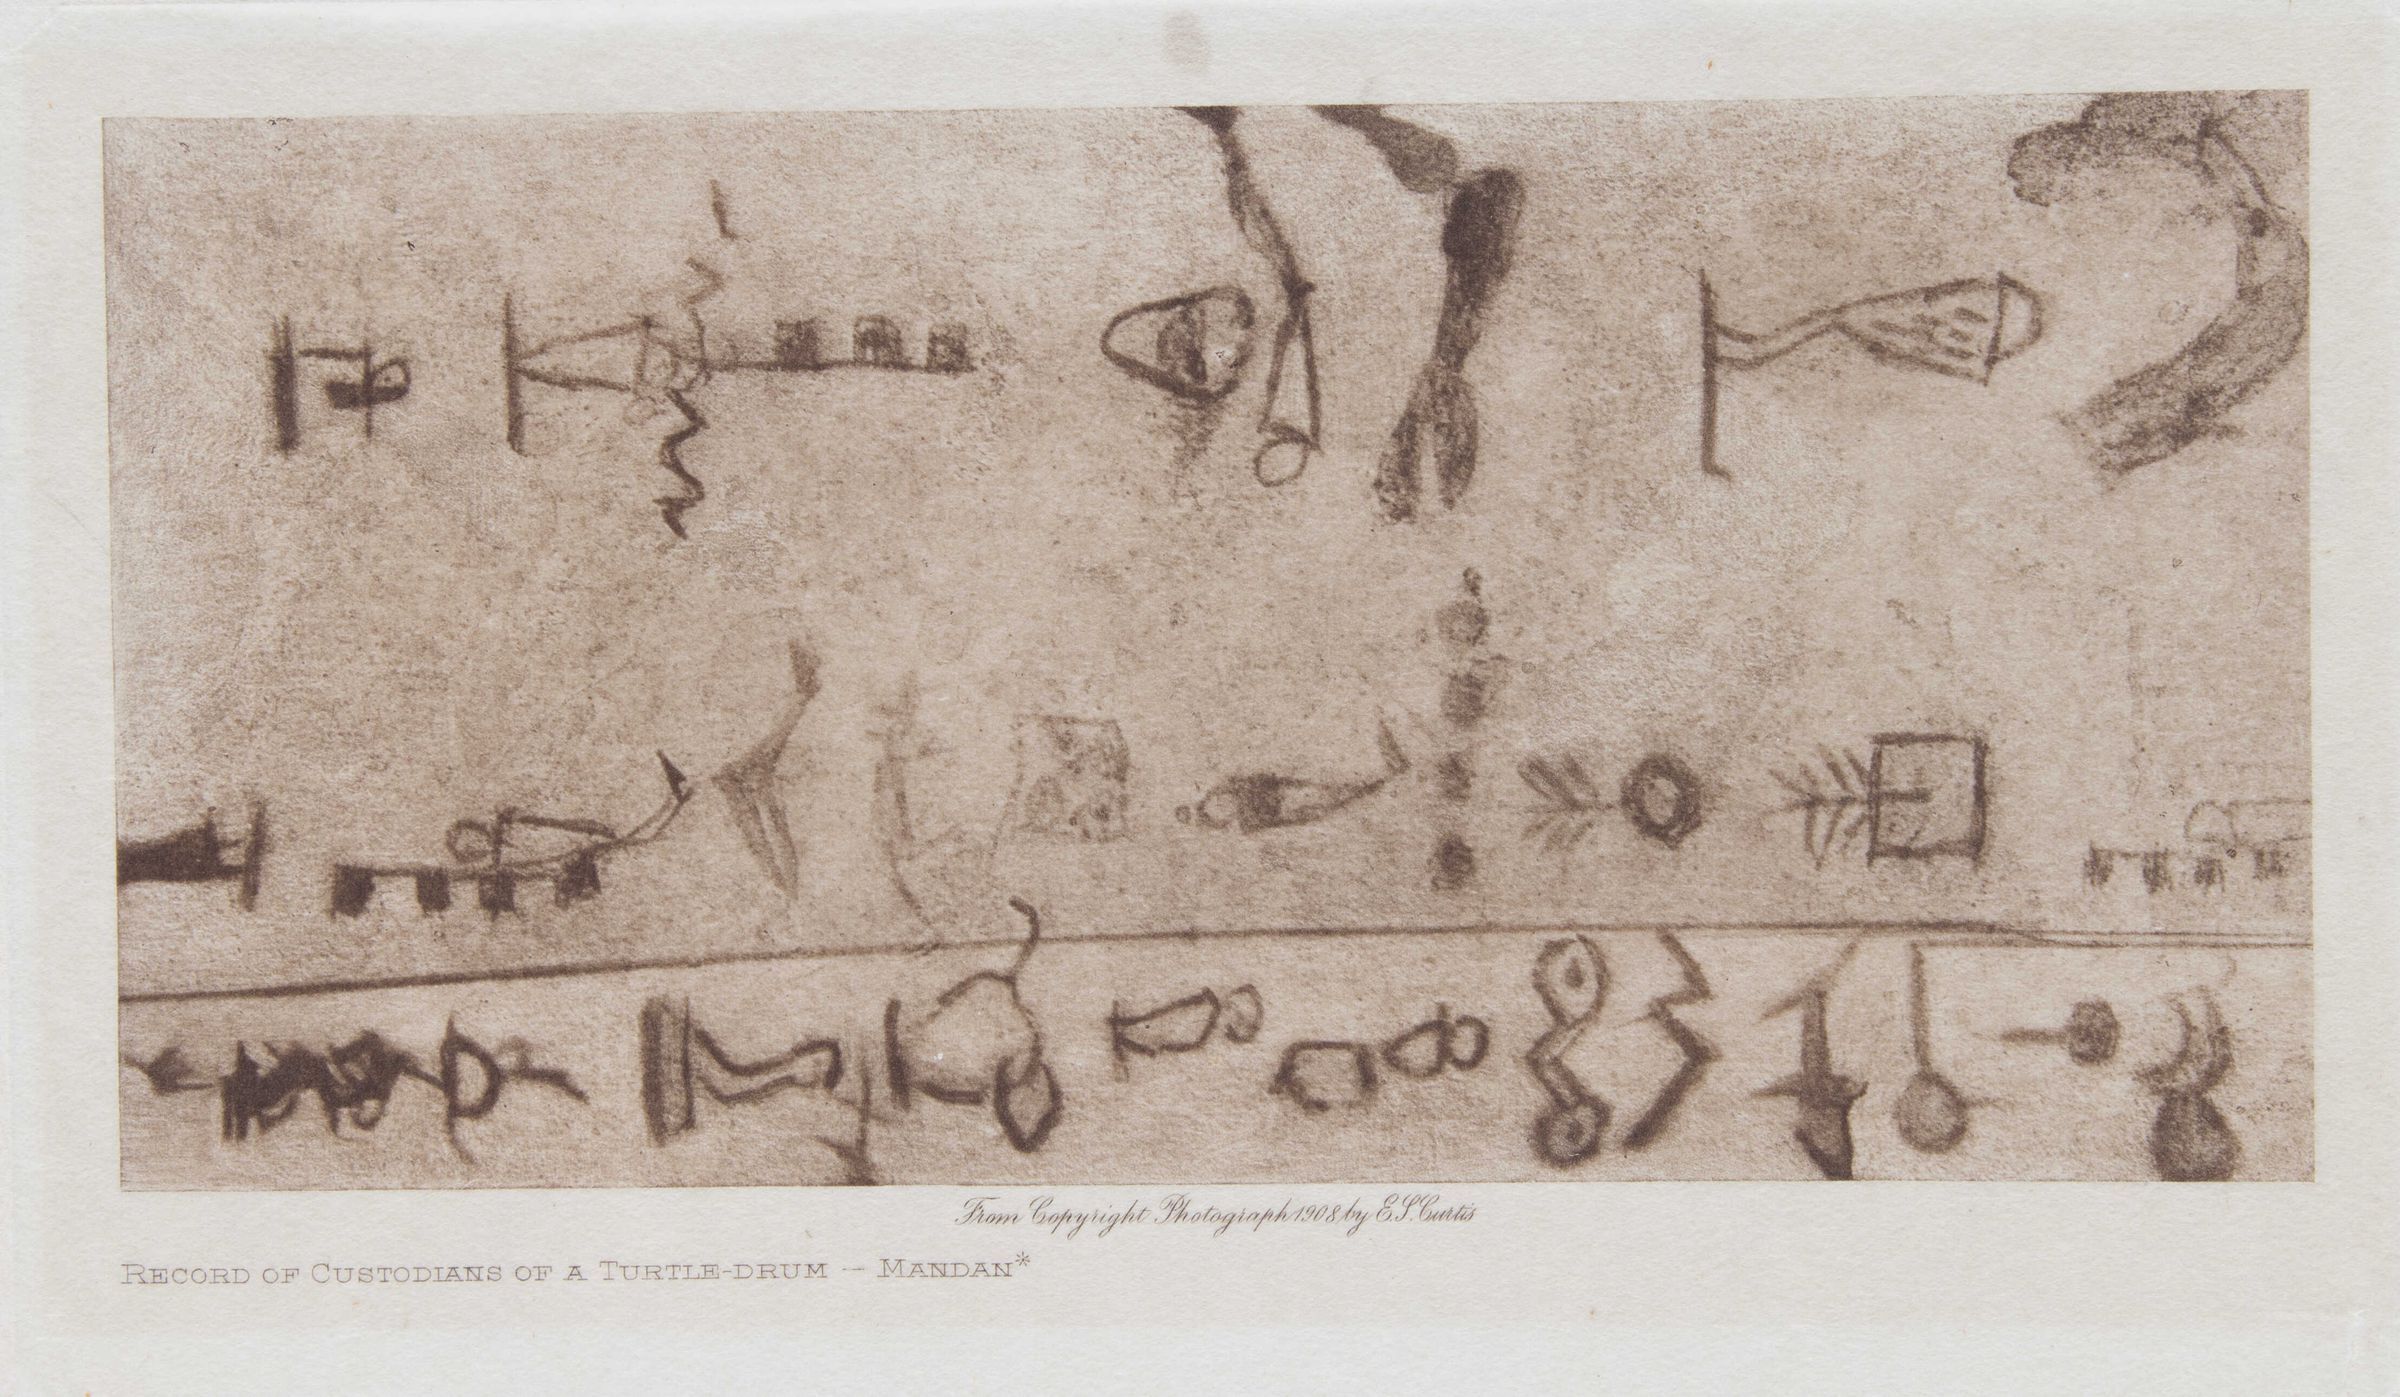 From Copyright Photograph 1908 by E.S. Curtis
RECORD OF CUSTODIANS OF A TURTLE-DRUM – MANDAN*